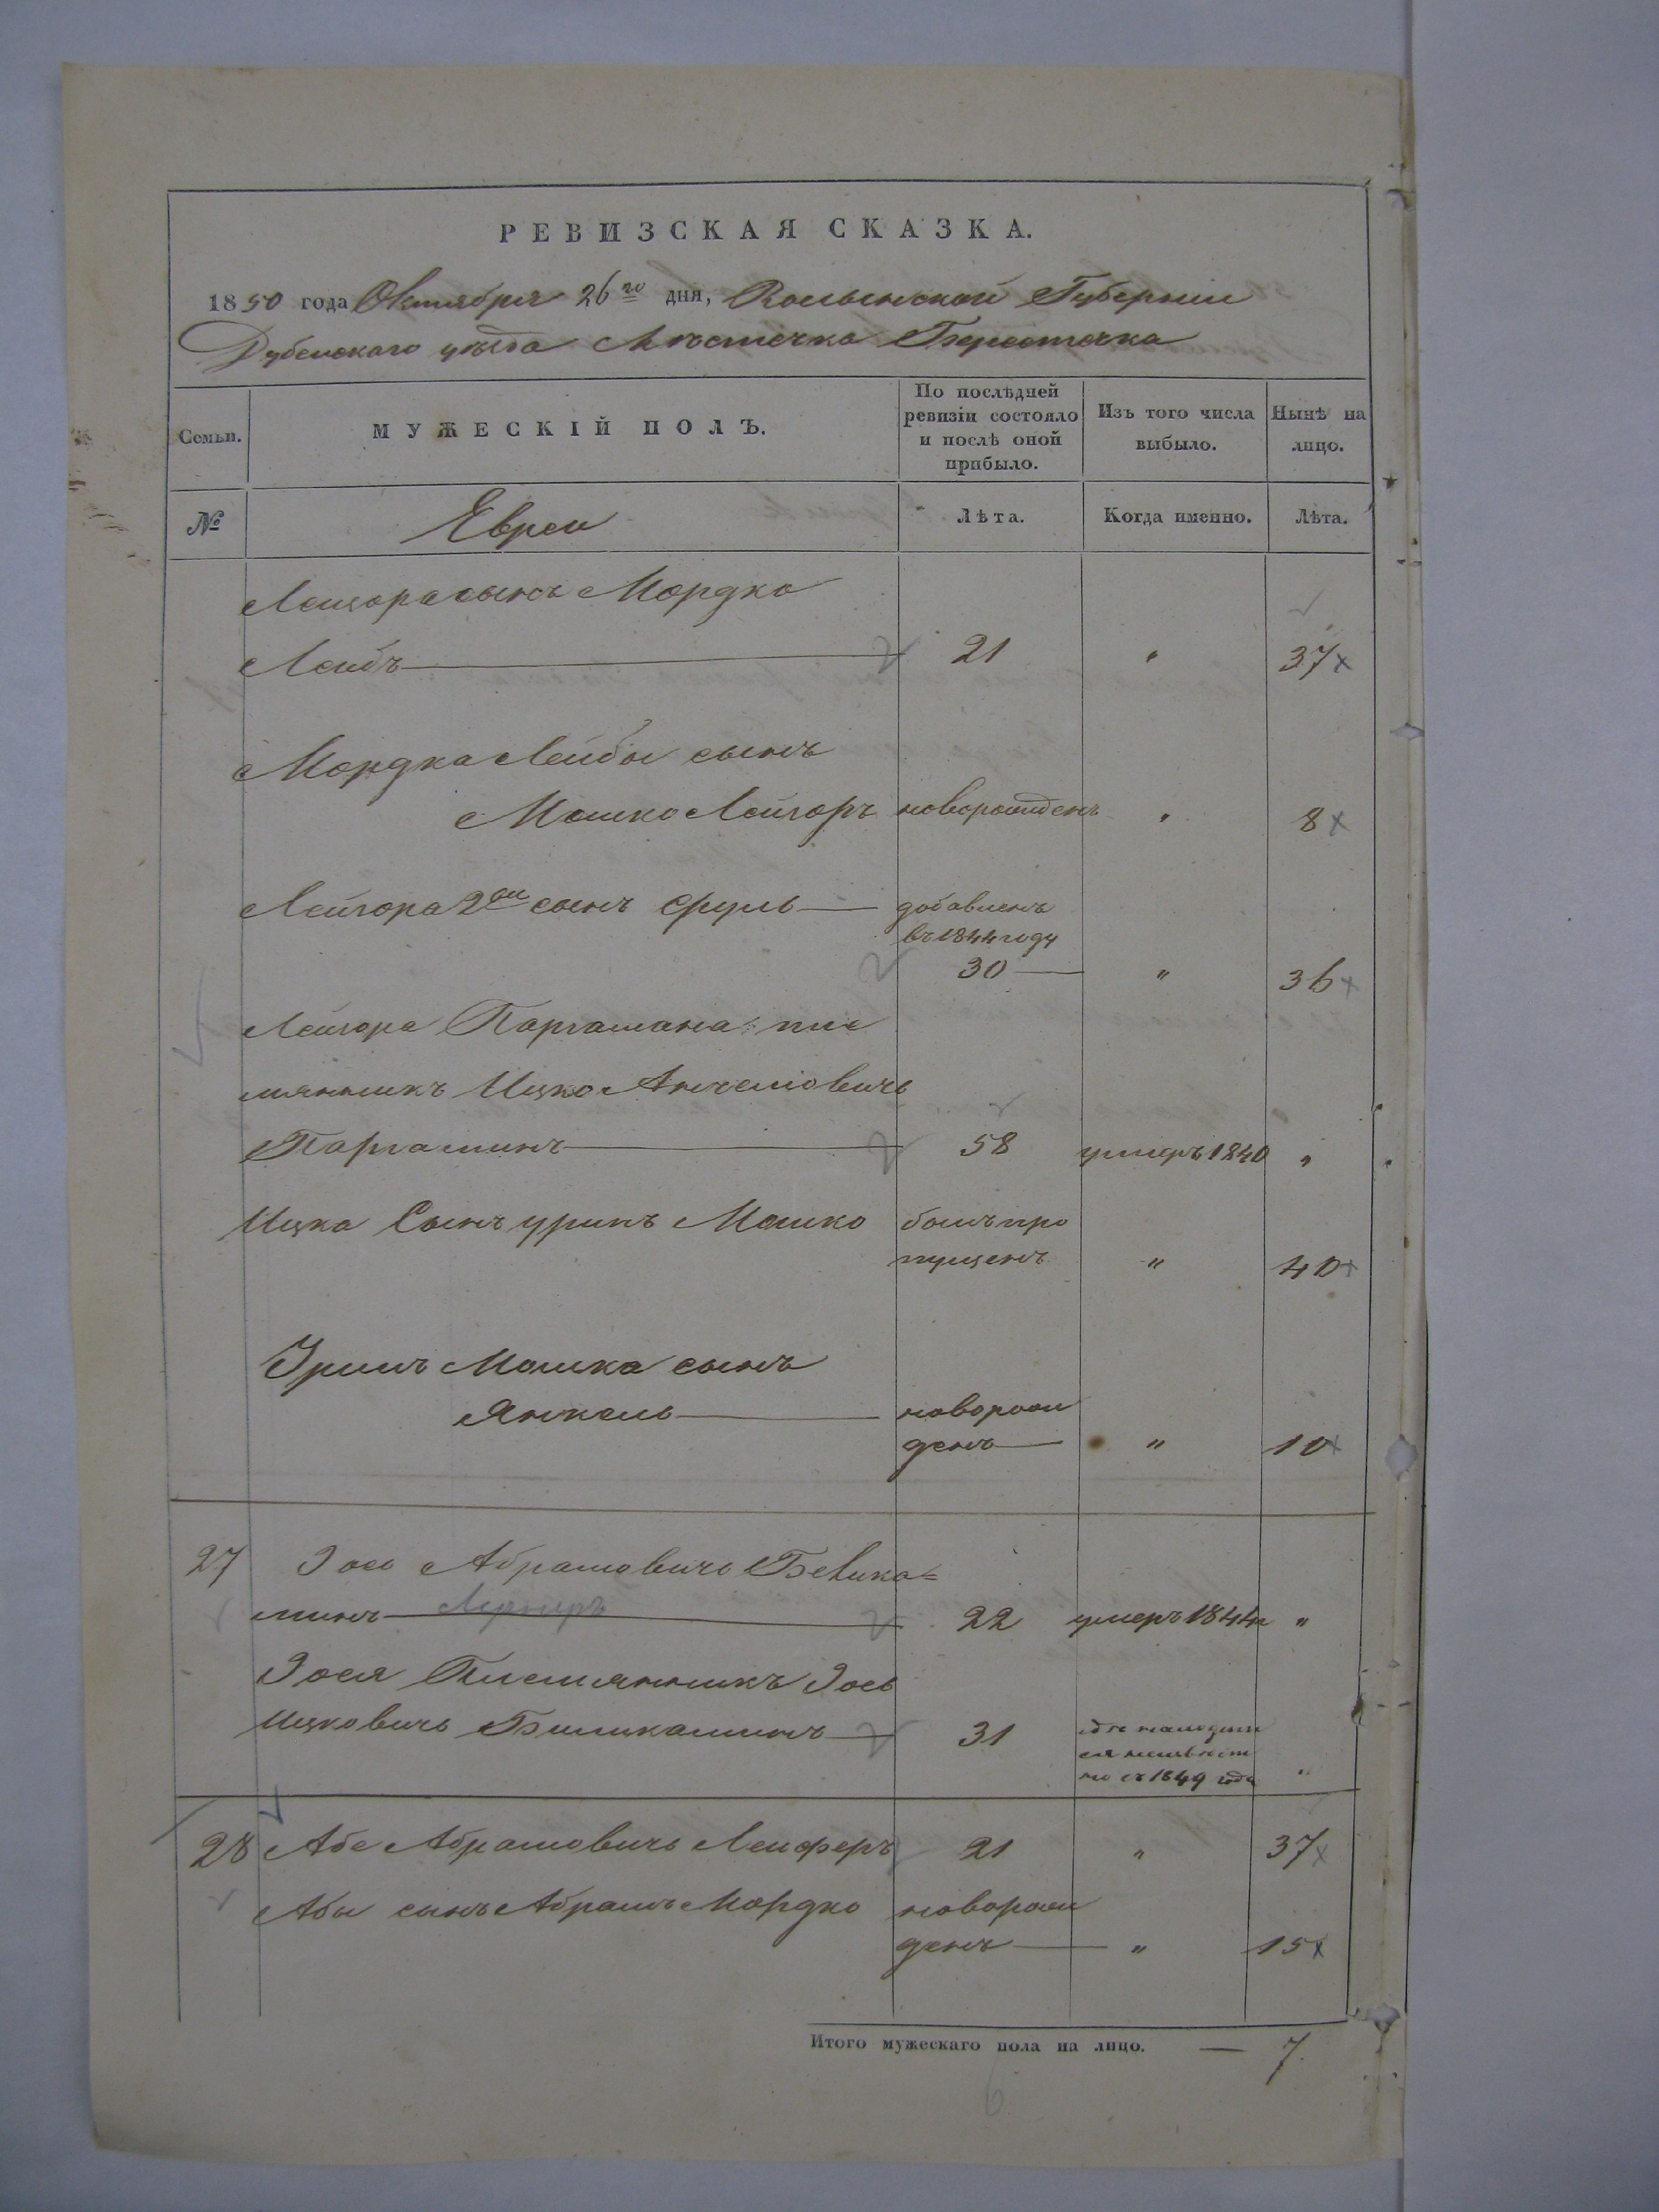 РЕВИЗСКАЯ СКАЗКА.
1850 года Октября 26го дня, Волынской Губернии
Дубенского уѣзда Мѣстечка Берестечка
Семьи.
МУЖЕСКІЙ ПОЛЪ.
По послѣдней ревизіи состояло и послѣ оной прибыло.
Изъ того числа выбыло.
Нынѣ на лицо.
№
Евреи
Лѣта.
Когда именно.
Лѣта.
сынъ Мордко
Лейбъ 21 " 37
Мордка Лейбы сынъ
Мошко Лейзоръ новорожденъ " 8
Лейзора 2й сынъ Сруль добавленъ
въ 1844 году
30 " 36
Лейзора пле
мянникъ Ицко
58 умеръ 1840 "
Ицка Сынъ Мошко былъ про
пущенъ " 40
Мошка сынъ
Янкель новорож
денъ " 10
27 Іось Абрамовичъ
минъ 22 умеръ 1844 "
Іося Племянникъ Іось
Ицковичъ 31
съ 1849 года "
28 Абе Абрамовичъ Лейферъ 21 " 37
Абы сынъ Абрамъ Мордко новорож
денъ " 15
Итого мужескаго пола на лицо. — 7.
6